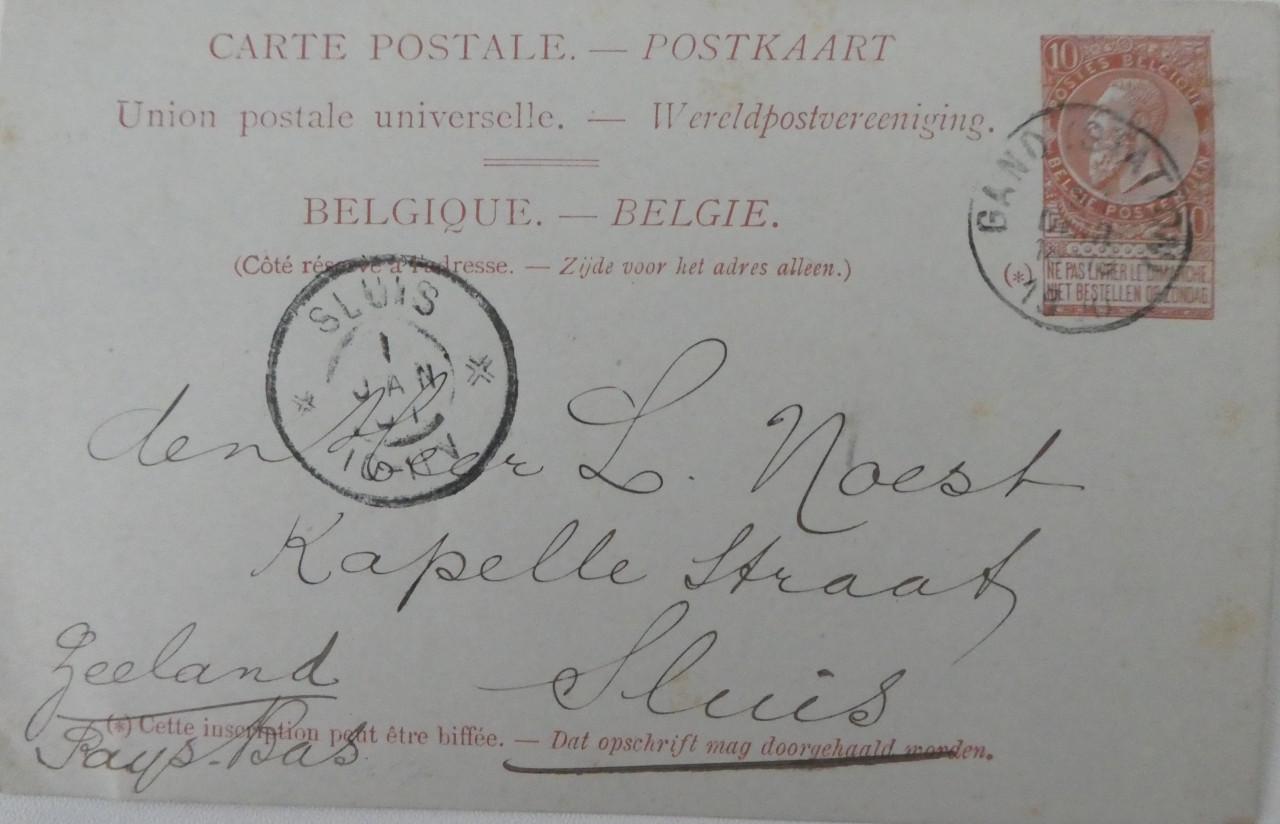 CARTE POSTALE. — POSTKAART
Union postale universelle. — Wereldpostvereeniging.
BELGIQUE. — BELGIE.
(Côté réservé à l'adresse. — Zijde voor het adres alleen.)
10
POSTES BELGIQUE
BELGIE POSTERIJEN
(*) NE PAS LIVRER LE DIMANCHE
NIET BESTELLEN OP ZONDAG
GAND (STATION)
SLUIS
1
JAN
den Heer L. Noest
Kapelle Straat
Sluis
Zeeland
Pays-Bas
(*) Cette inscription peut être biffée. — Dat opschrift mag doorgehaald worden.